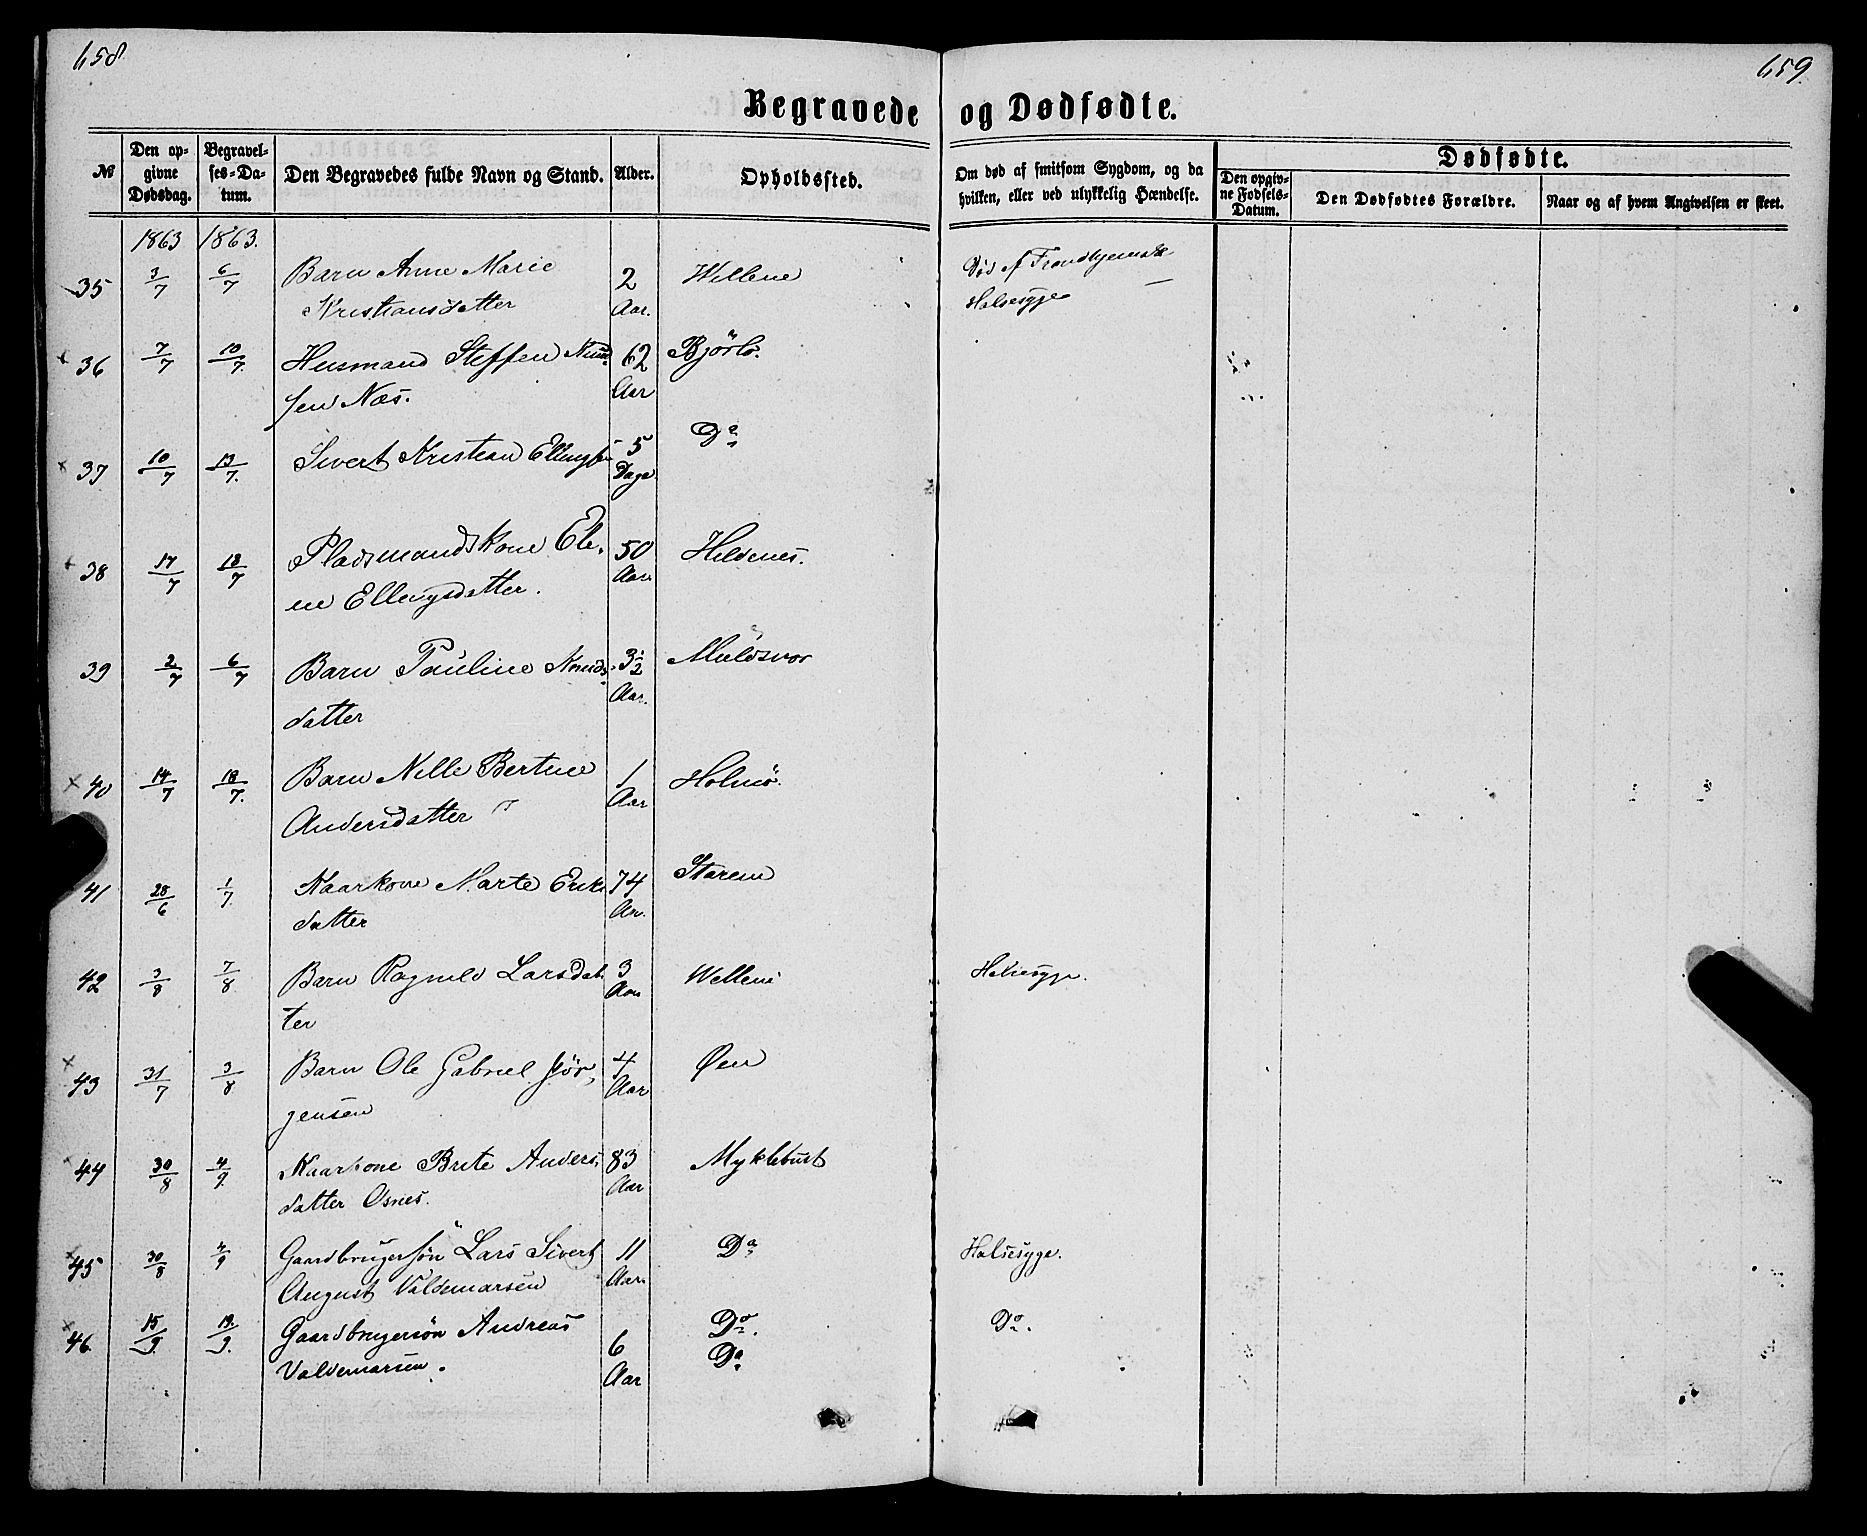 658
659
Begravede og Dødfødte.
№
Den opgivne Dødsdag.
Begravelses-Datum.
Den Begravedes fulde Navn og Stand.
Alder.
Opholdssted.
Om død af smitsom Sygdom, og da hvilken, eller ved ulykkelig Hændelse.
Dødfødte.
Den opgivne Fødsels-Datum.
Den Dødfødtes Forældre.
Naar og af hvem Angivelsen er skeet.
1863 1863.
35 3/7 6/7 Barn Anne Marie 2 Wellene Død af Trondhjemske
Kristiansdatter Aar. Halsesyge
36 7/7 10/7. Husmand Steffen Knud- 62 Bjørlo.
sen Næs. Aar
37 10/7 13/7. Sivert Kristian Ellingsen 5 Do
Dage
38 17/7 18/7 Pladsmandskone Ele- 50 Hildenes.
ne Ellingsdatter. Aar
39 2/7 6/7 Barn Pauline Knuds- 3½ Muldsvor
datter Aar.
40 14/7 18/7. Barn Nille Bertine 1 Holmø.
Andersdatter Aar
41 28/6 1/7. Kaarkone Marte Eriks 74 Starem
datter Aar.
42 3/8 7/8 Barn Ragnild Larsdat- 3 Wellene Halsesyge.
ter Aar
43 31/7 3/8 Barn Ole Gabriel Jør- 4 Øen
gensen Aar
44 30/8 4/9. Kaarkone Brite Anders- 83 Myklebust
datter Osnes. Aar
45 30/8 4/9 Gaardbrugersøn Lars Sivert 11 Do Halsesyge.
August Valdemarsen Aar.
46. 15/9. 19./9. Gaardbrugersøn Andreas 6 Do. Do.
Valdemarsen. Aar Do